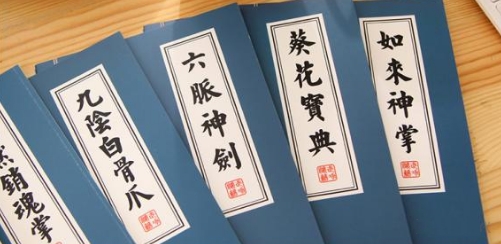 如來神掌
葵花寶典
六脈神劍
九陰白骨爪
銷魂掌